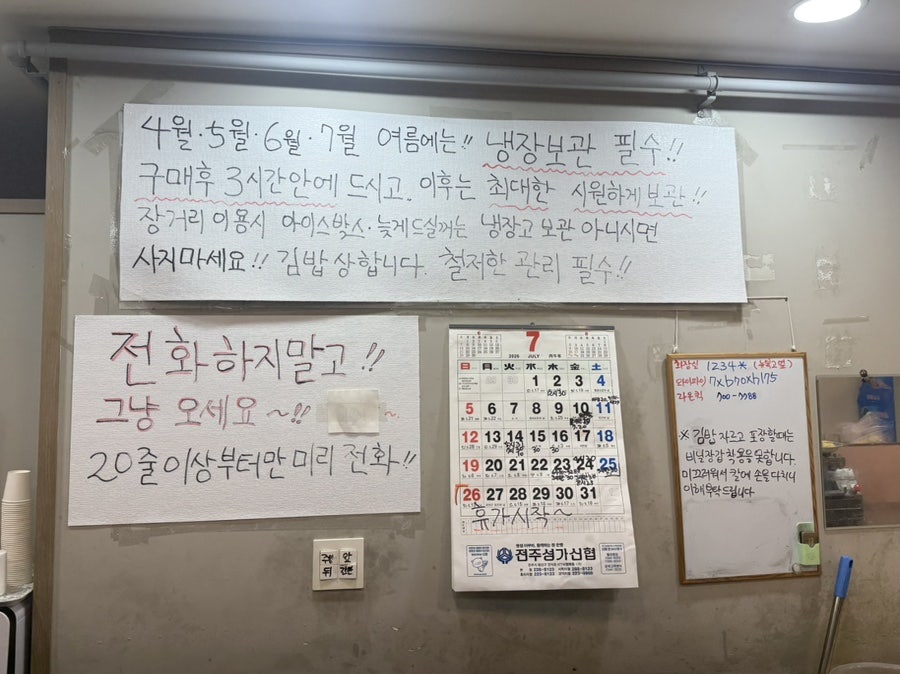 4월·5월·6월·7월 여름에는!! 냉장보관 필수!!
구매후 3시간안에 드시고. 이후는 최대한 시원하게 보관!!
장거리 이용시 아이스박스·늦게드실꺼는 냉장고 보관 아니시면
사지마세요!! 김밥 상합니다. 철저한 관리 필수!!
전화하지말고!!
그냥 오세요~!! ~
20줄이상부터만 미리 전화!!
7
2026 JULY
日 月 火 水 木 金 土
1 2 3 4
5 6 7 8 9 10 11
12 13 14 15 16 17 18
19 20 21 22 23 24 25
26 27 28 29 30 31
휴가시작~
전주성가신협
화장실 1234*
와이파이
700-7788
※ 김밥 자르고 포장할때는
비닐장갑 착용을 못합니다.
미끄러워서 칼에 손을 다치니
이해부탁드립니다
주방 안
뒤 간판